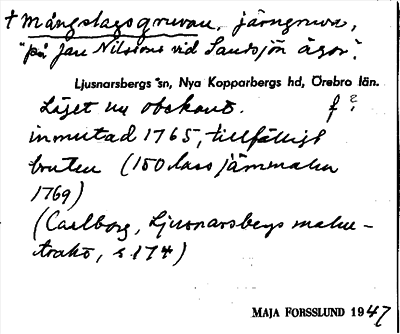 † Mångslagsgruvan, järngruva,
"på Jan Nilssons vid Sandsjön ägor".
Ljusnarsbergs sn, Nya Kopparbergs hd, Örebro län.
Läget nu obekant. f ?
inmutad 1765, tillfälligt
bruten (150 lass järnmalm
1769)
(Carlborg, Ljusnarsbergs malm-
trakt, s. 174)
MAJA FORSSLUND 1947